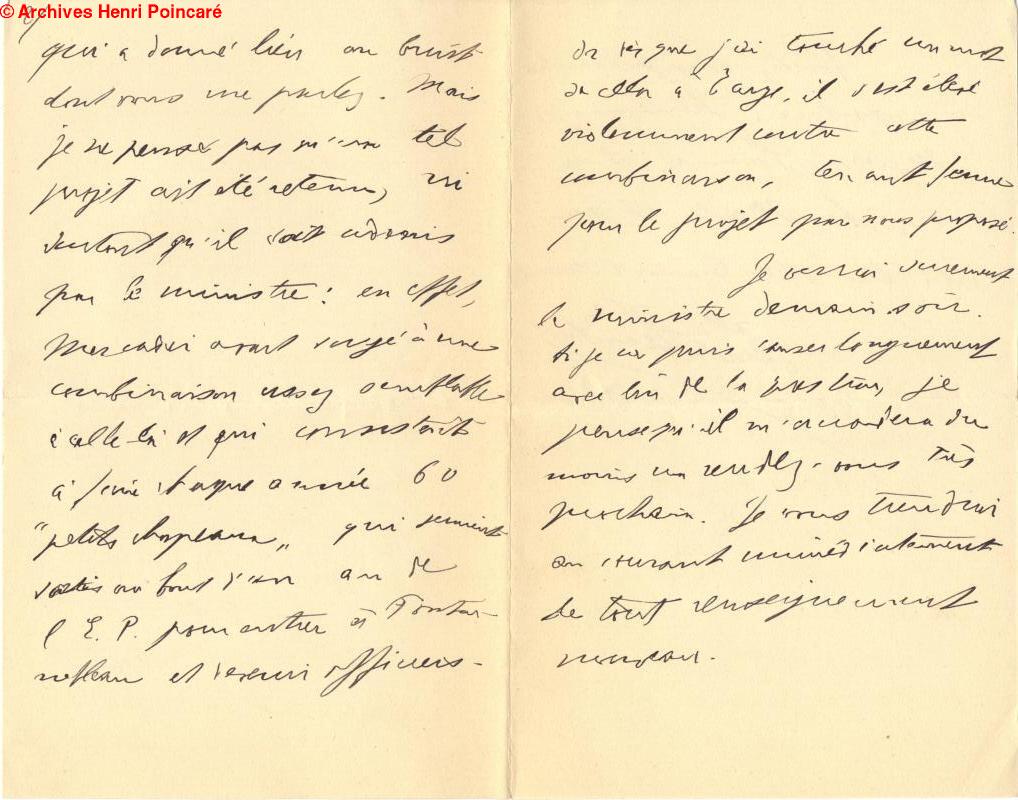 © Archives Henri Poincaré
qui a donné lieu au bruit
dont vous me parlez. Mais
je ne pense pas qu'un tel
projet ait été retenu, ni
surtout qu'il soit admis
par le ministre : en effet,
Mercadier avait songé à une
combinaison assez semblable
à celle là et qui consistait
à faire chaque année 60
"petits chapeaux" qui seraient
sortis au bout d'un an de
l'E. P. pour entrer à Fontai-
nebleau et devenir officiers -
dès que j'ai touché un mot
de cela à il s'est élevé
violemment contre cette
combinaison, tenant ferme
pour le projet par nous proposé.
Je verrai surement
le ministre demain soir.
Si je ne puis causer longuement
avec lui de la question, je
pense qu'il m'accordera du
moins un rendez-vous très
prochain. Je vous tiendrai
au courant immédiatement
de tout renseignement
nouveau.